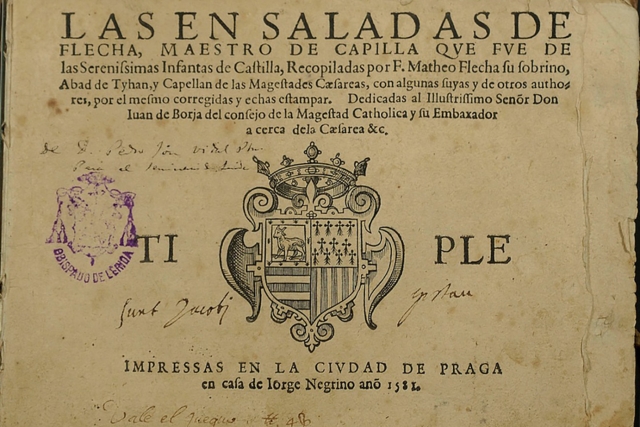 LAS EN SALADAS DE
FLECHA, MAESTRO DE CAPILLA QVE FVE DE
las Sereniſsimas Infantas de Caſtilla, Recopiladas por F. Matheo Flecha ſu ſobrino,
Abad de Tyhan, y Capellan de las Mageſtades Cæſareas, con algunas ſuyas y de otros autho-
res, por el meſmo corregidas y echas eſtampar. Dedicadas al Illuſtriſsimo Senõr Don
Iuan de Borja del conſejo de la Mageſtad Catholica y su Embaxador
a cerca dela Cæſarea &c.
de D. Pedro Jon Vidal
Para el
OBISPADO DE LERIDA
TI PLE
sunt Jacobj
IMPRESSAS EN LA CIVDAD DE PRAGA
en caſa de Iorge Negrino anõ 1581.
Vale el